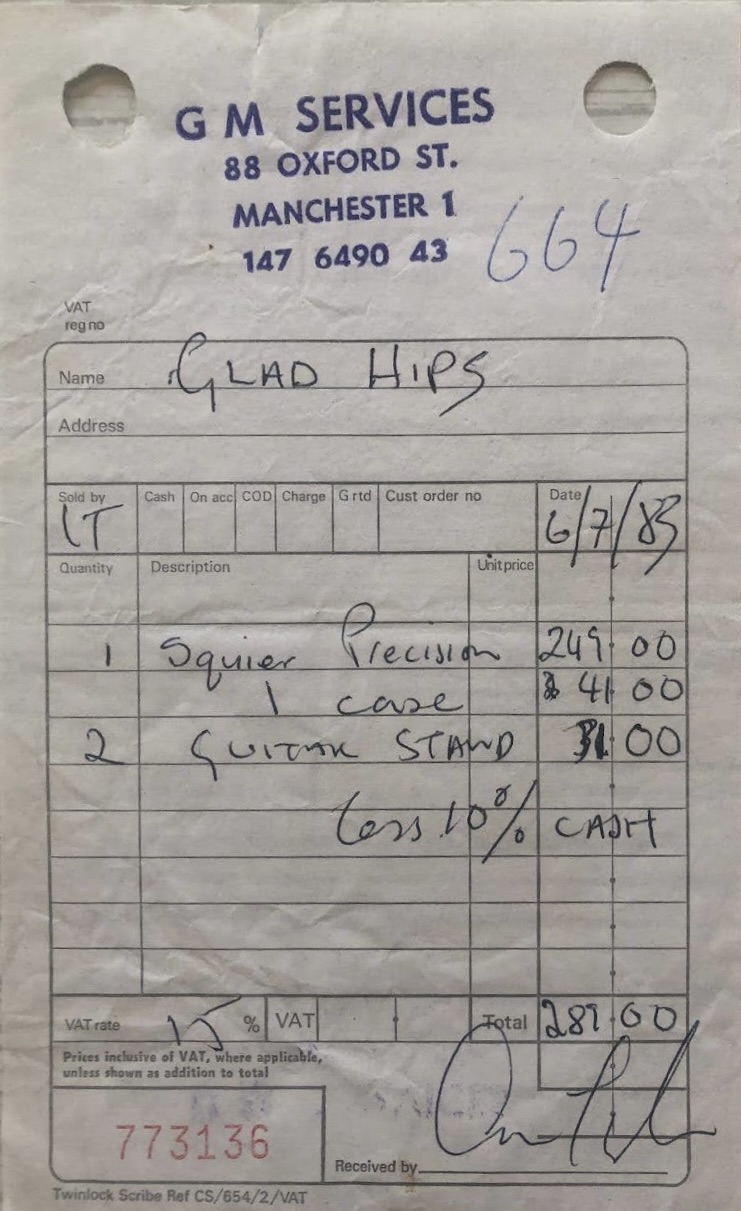 G M SERVICES
88 OXFORD ST.
MANCHESTER 1
147 6490 43
664
VAT
reg no
Name GLAD HIPS
Address
Sold by Cash On acc COD Charge G rtd Cust order no Date
LT 6/7/83
Quantity Description Unit price
1 Squier Precision 249 00
1 case 41 00
2 GUITAR STAND 31 00
Less 10% CASH
VAT rate 15 % VAT Total 289.00
Prices inclusive of VAT, where applicable,
unless shown as addition to total
773136
Received by
Twinlock Scribe Ref CS/654/2/VAT